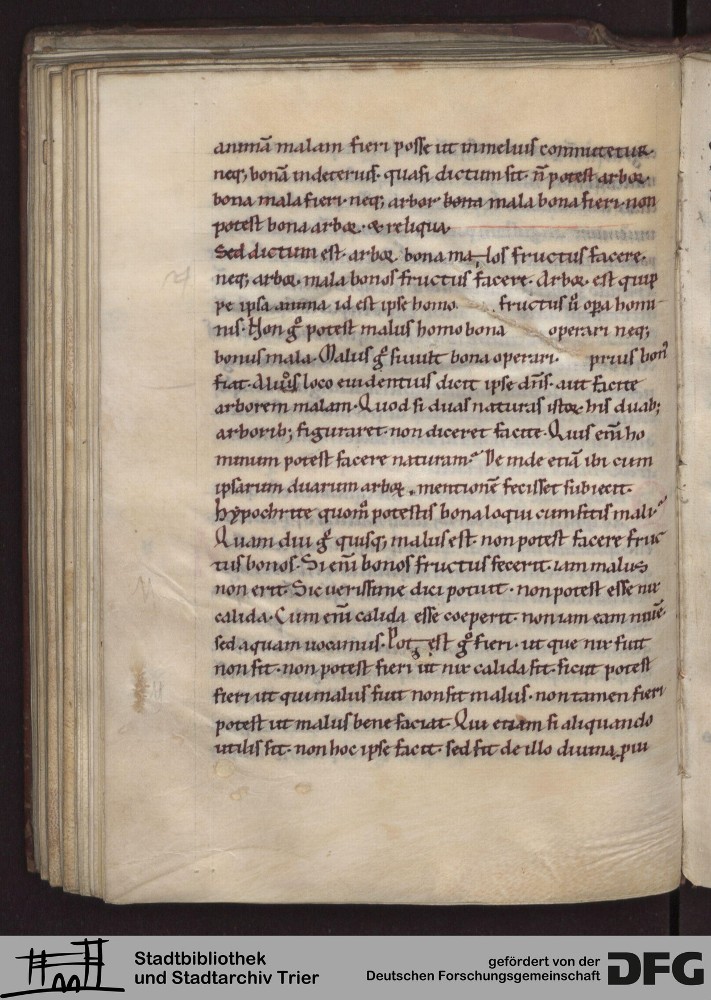 animā malam fieri posse ut inmelius commutetur.
neq; bonā indeterius. quasi dictum sit. n̄ potest arbor
bona mala fieri. neq; arbor bona mala bona fieri. non
potest bona arbor. & reliqua.
Sed dictum est. arbor bona malos fructus facere.
neq; arbor. mala bonos fructus facere. Arbor. est quip
pe ipsa anima id est ipse homo. fructus ů opa homi
nis. Non gº potest malus homo bona operari neq;
bonus mala. Malus gº si uult bona operari. prius bon᾽
fiat. loco euidentius dicit ipse dn̄s. aut facite
arborem malam. Quod si duas naturas istor his duab;
arborib; figuraret. non diceret facite. Quis eni̅ ho
minum potest facere naturam. De inde etiā ibi cum
ipsarum duarum arbor. mentionē fecisset subiecit.
hypochrite quom̊ potestis bona loqui cum sitis mali.
Quam diu gº quisq; malus est. non potest facere fruc
tus bonos. Si eni̅ bonos fructus fecerit. iam malus
non erit. Sic uerissime dici potuit. non potest esse nix
calida. Cum eni̅ calida esse coeperit. non iam eam niuē.
sed aquam uocamus. est gº fieri. ut que nix fuit
non sit. non potest fieri ut nix calida sit. sicut potest
fieri ut qui malus fuit non sit malus. non tamen fieri
potest ut malus bene faciat. Qui etiam si aliquando
utilis sit. non hoc ipse facit. sed fit de illo diuina, pui
Stadtbibliothek
und Stadtarchiv Trier
gefördert von der
Deutschen Forschungsgemeinschaft
DFG